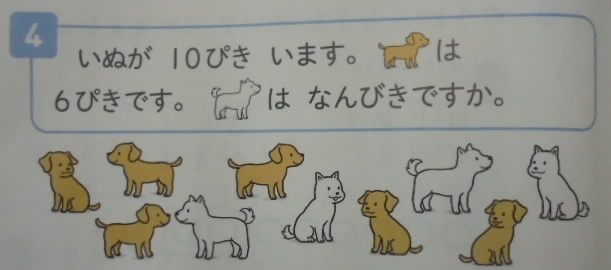 4
いぬが 10ぴき います。 は
6ぴきです。 は なんびきですか。